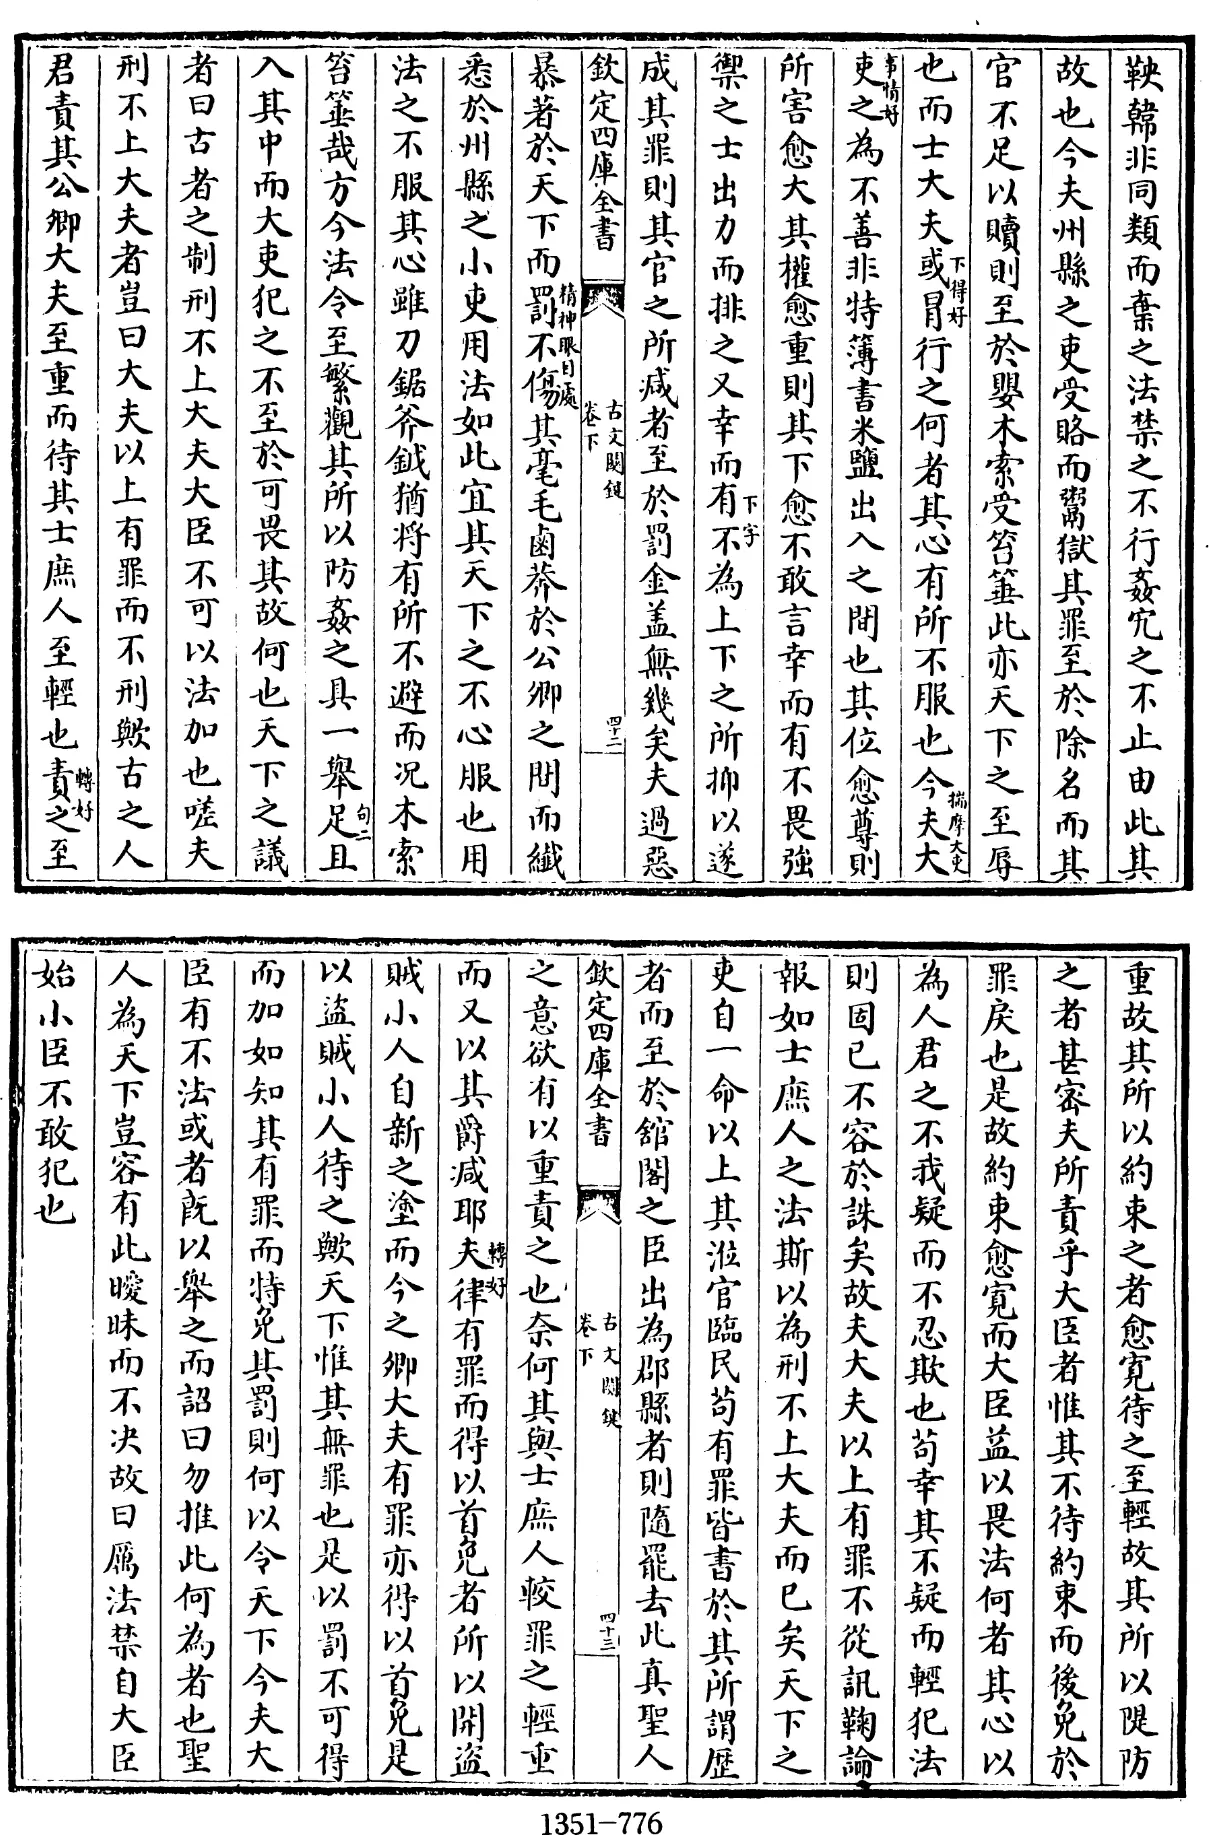 鞅韓非同類而棄之法禁之不行姦宄之不止由此其
故也今夫州縣之吏受賂而鬻獄其罪至於除名而其
官不足以贖則至於嬰木索受笞箠此亦天下之至辱
也而士大夫或下得好冒行之何者其心有所不服也今夫大揣摩大吏
吏事情好之為不善非特簿書米鹽出入之間也其位愈尊則
所害愈大其權愈重則其下愈不敢言幸而有不畏強
禦之士出力而排之又幸而有下字不為上下之所抑以遂
成其罪則其官之所減者至於罰金盖無幾矣夫過惡
欽定四庫全書
古文關鍵
卷下
四十二
暴著於天下而罰精神眼目處不傷其毫毛鹵莽於公卿之間而纖
悉於州縣之小吏用法如此宜其天下之不心服也用
法之不服其心雖刀鋸斧鉞猶將有所不避而况木索
笞箠哉方今法令至繁觀其所以防姦之具一舉足且句二
入其中而大吏犯之不至於可畏其故何也天下之議
者曰古者之制刑不上大夫大臣不可以法加也嗟夫
刑不上大夫者豈曰大夫以上有罪而不刑歟古之人
君責其公卿大夫至重而待其士庶人至輕也責轉好之至
重故其所以約束之者愈寛待之至輕故其所以隄防
之者甚密夫所責乎大臣者惟其不待約束而後免於
罪戾也是故約束愈寛而大臣益以畏法何者其心以
為人君之不我疑而不忍欺也苟幸其不疑而輕犯法
則固已不容於誅矣故夫大夫以上有罪不從訊鞫論
報如士庶人之法斯以為刑不上大夫而已矣天下之
吏自一命以上其涖官臨民苟有罪皆書於其所謂歴
者而至於舘閣之臣出為郡縣者則隨罷去此真聖人
欽定四庫全書
古文關鍵
卷下
四十三
之意欲有以重責之也奈何其與士庶人較罪之輕重
而又以其爵減耶夫轉好律有罪而得以首免者所以開盗
賊小人自新之塗而今之卿大夫有罪亦得以首免是
以盗賊小人待之歟天下惟其無罪也是以罰不可得
而加如知其有罪而特免其罰則何以令天下今夫大
臣有不法或者既以舉之而詔曰勿推此何為者也聖
人為天下豈容有此曖昧而不决故曰厲法禁自大臣
始小臣不敢犯也
1351-776